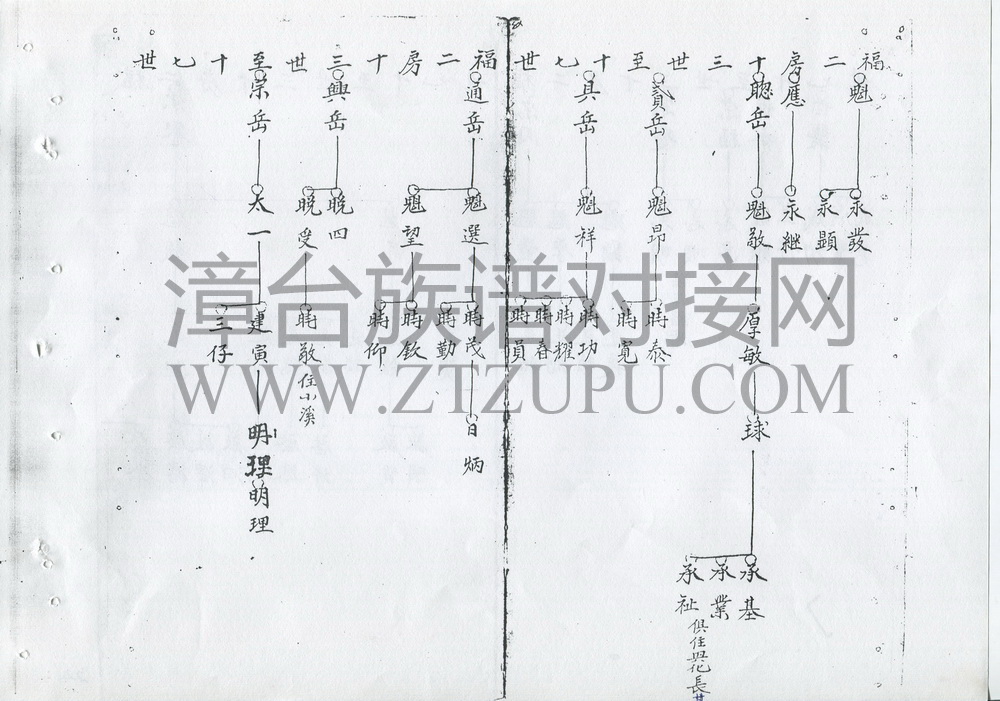 福二房十三世至十七世
魁
永發
永顯
應
永繼
聰岳
魁敬
厚敏
球
承基
承業
承祉 俱住興化長
貳岳
魁昂
時泰
時寬
具岳
魁祥
時功
時耀
時春
時員
福二房十三世至十七世
通岳
魁選
時茂
日炳
時勤
魁望
時欽
時仰
興岳
晚四
晚受
時敬 住小溪
崇岳
太一
建寅
明理
明理
三仔
漳台族谱对接网
WWW.ZTZUPU.COM